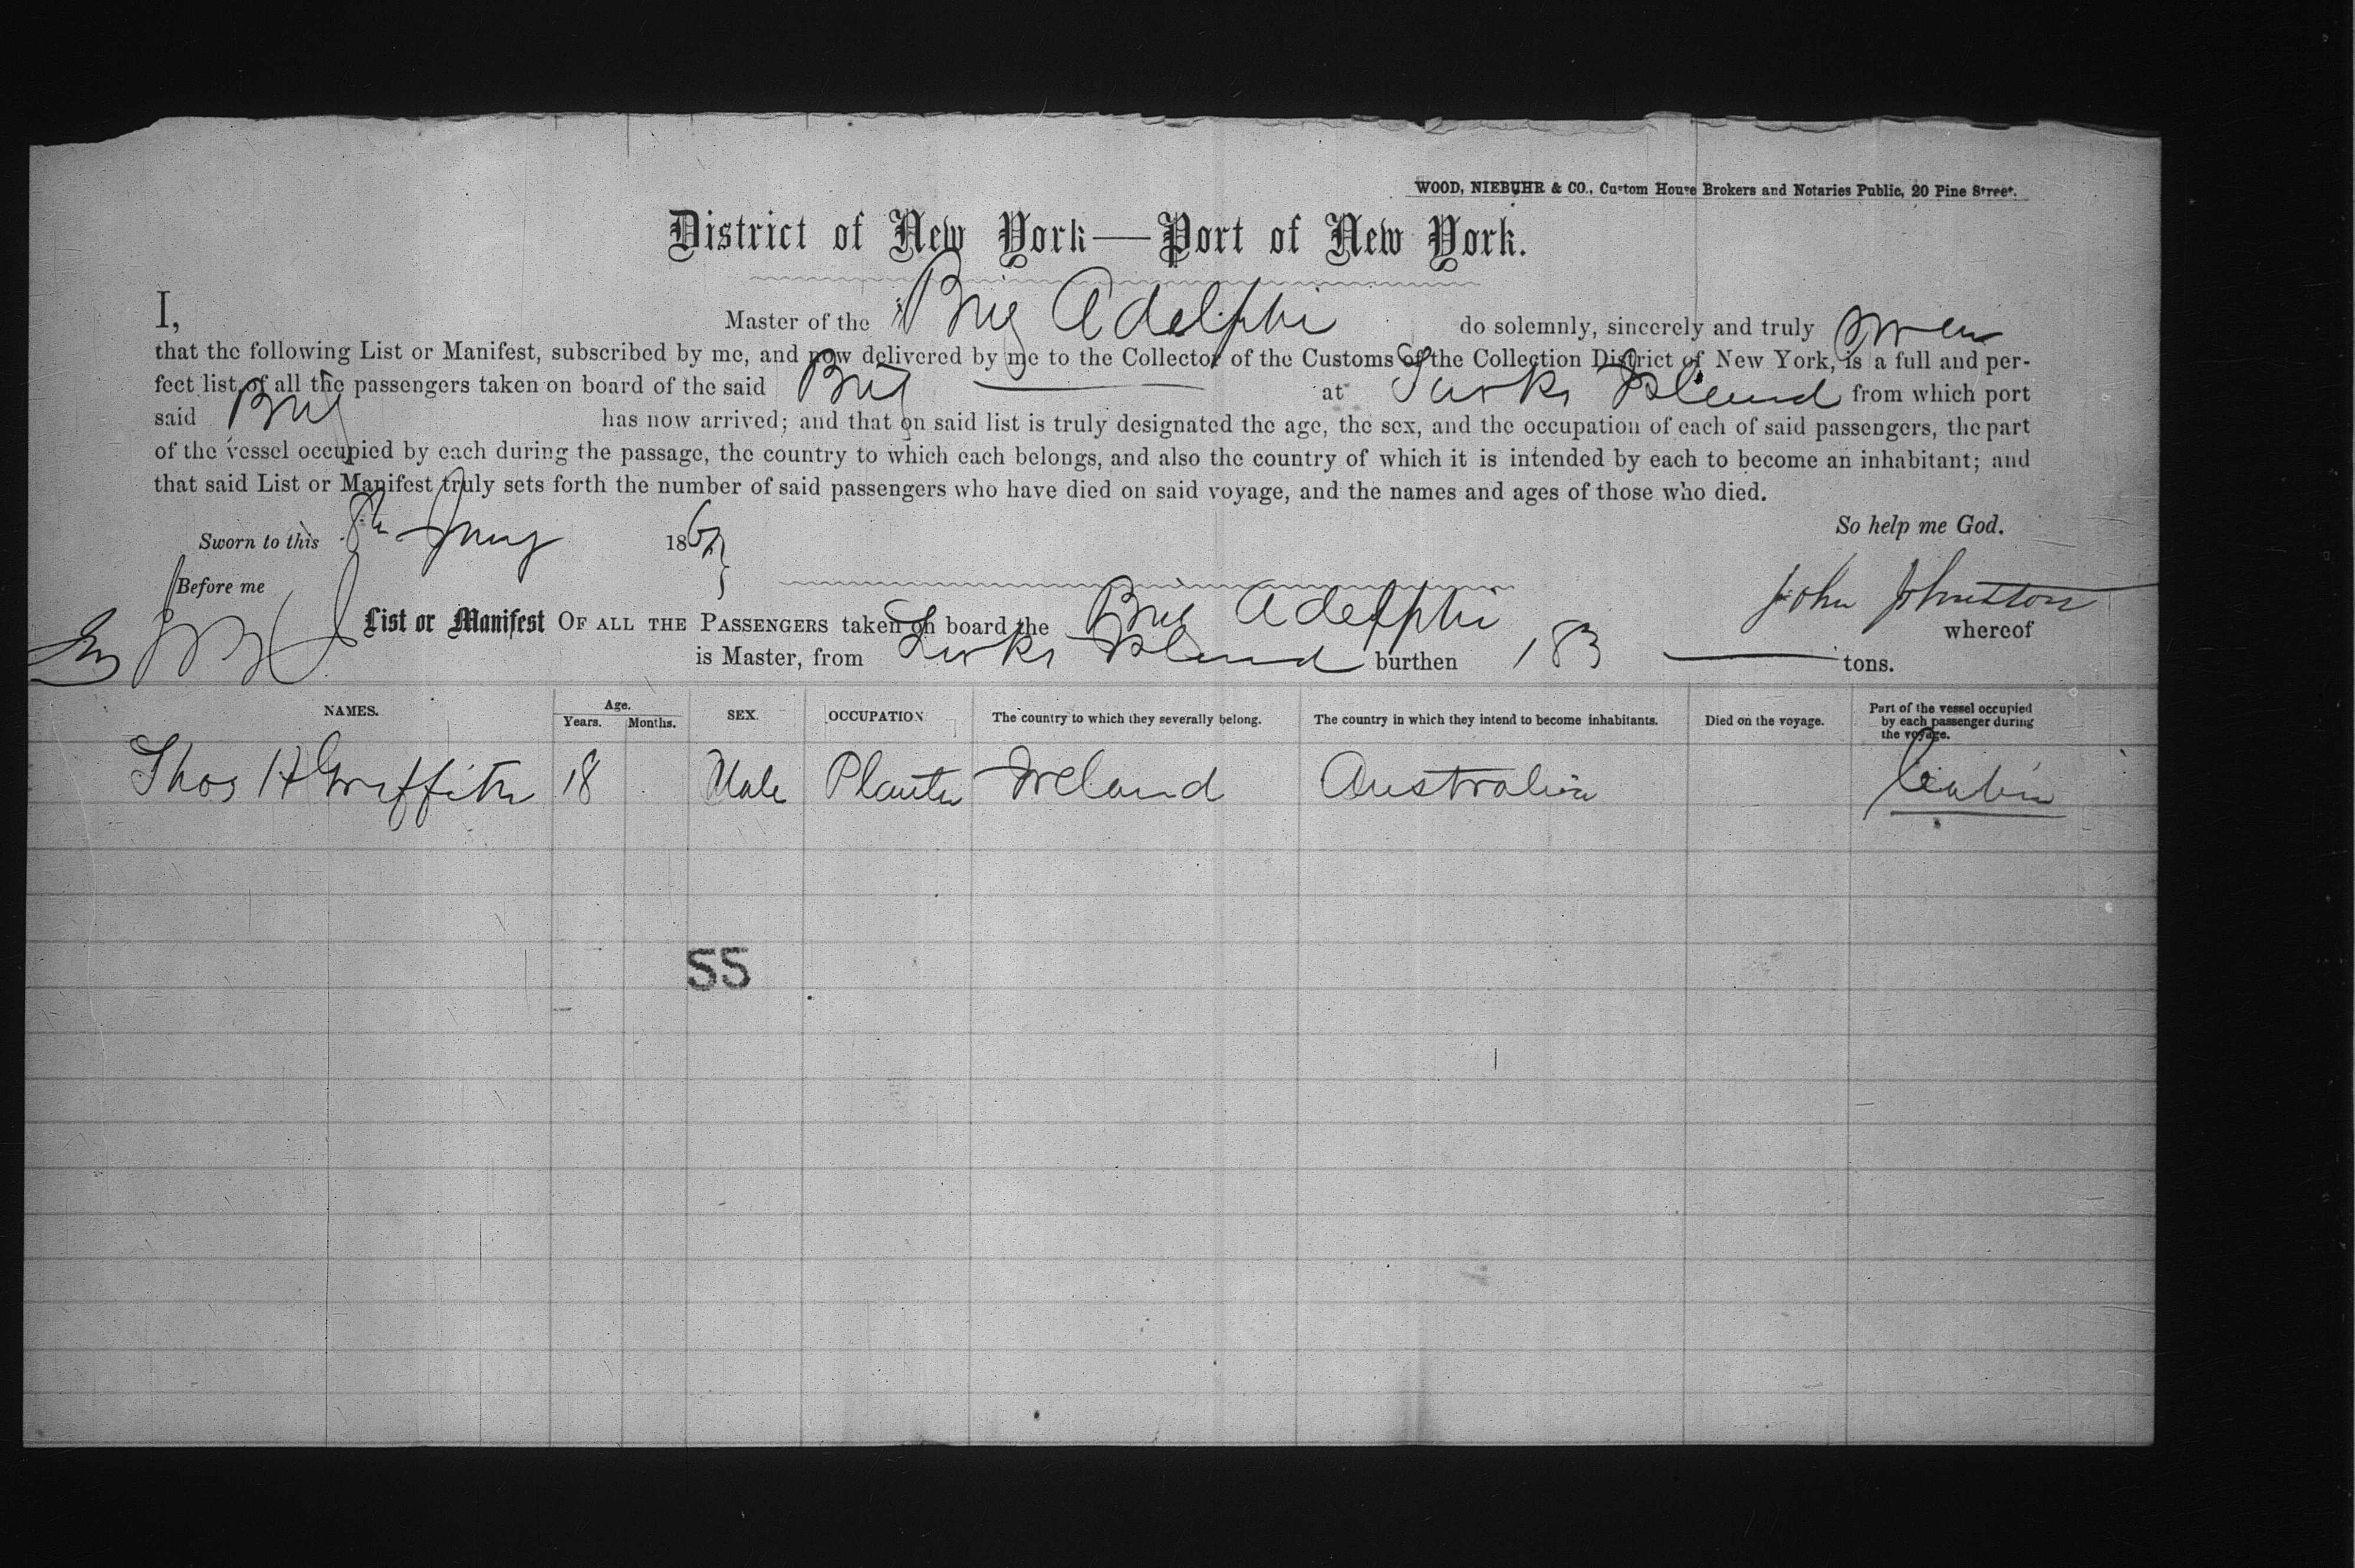 WOOD, NIEBUHR & CO., Custom House Brokers and Notaries Public, 20 Pine Street.
District of New York—Port of New York.
I, Master of the Brig Adelphi do solemnly, sincerely and truly swear
that the following List or Manifest, subscribed by me, and now delivered by me to the Collector of the Customs of the Collection District of New York, is a full and per-
fect list of all the passengers taken on board of the said Brig at Turks Island from which port
said Brig has now arrived; and that on said list is truly designated the age, the sex, and the occupation of each of said passengers, the part
of the vessel occupied by each during the passage, the country to which each belongs, and also the country of which it is intended by each to become an inhabitant; and
that said List or Manifest truly sets forth the number of said passengers who have died on said voyage, and the names and ages of those who died.
So help me God.
Sworn to this 8th 186
Before me
John Johnston
List or Manifest OF ALL THE PASSENGERS taken on board the Brig Adelphi whereof
is Master, from Turks Island burthen 183 tons.
NAMES. Age. Years. Months. SEX. OCCUPATION The country to which they severally belong. The country in which they intend to become inhabitants. Died on the voyage. Part of the vessel occupied by each passenger during the voyage.
Thos H Griffith 18 Male Planter Ireland Australia Cabin
55